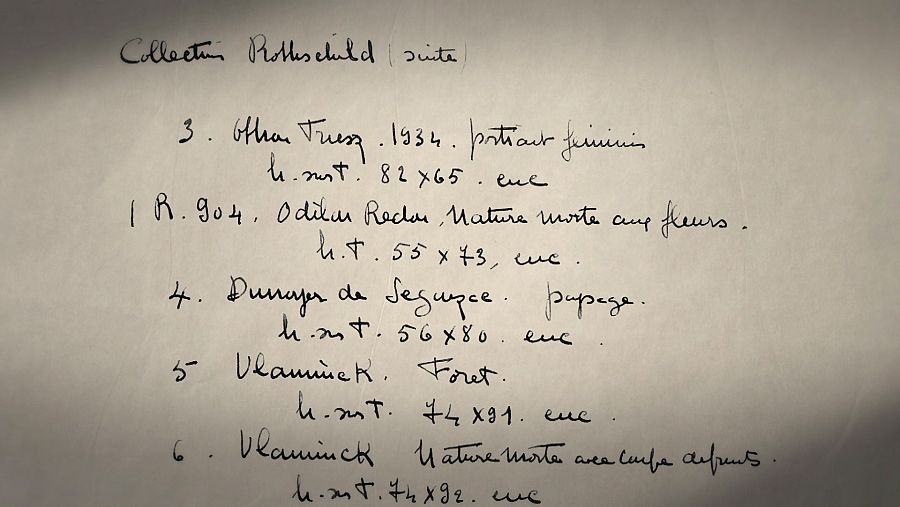 Collection Rothschild (suite)
3. Othon Friesz. 1934. portrait féminin
h. sur t. 82 x 65. enc
R. 904. Odilon Redon, Nature morte aux fleurs.
h. T. 55 x 73, enc.
4. Dunoyer de Segonzac. paysage.
h. sur t. 56 x 80. enc.
5 Vlaminck. Foret.
h. sur t. 74 x 91. enc.
6. Vlaminck Nature morte avec coupe de fruits.
h. sur t. 74 x 92. enc